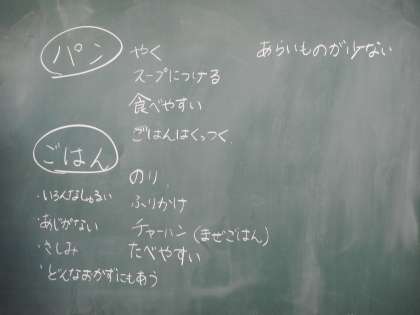 パン
やく
あらいものが少ない
スープにつける
食べやすい
ごはんはくっつく
ごはん
のり
・いろんなしゅるい
ふりかけ
・あじがない
チャーハン(まぜごはん)
・さしみ
たべやすい
・どんなおかずにもあう